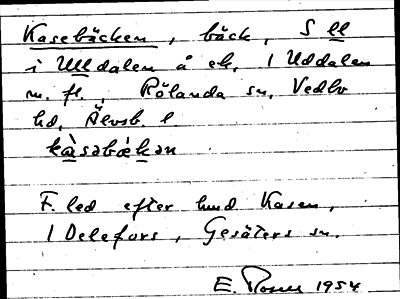 Kasebäcken, bäck, S ll
i Ulldalen å ek. 1 Uddalen
m. fl., Rölanda sn, Vedbo
hd, Älvsb. l
kàsəbæ̀kən
F. led efter lund Kasen,
1 Delefors, Gesäters sn.
E. 1954